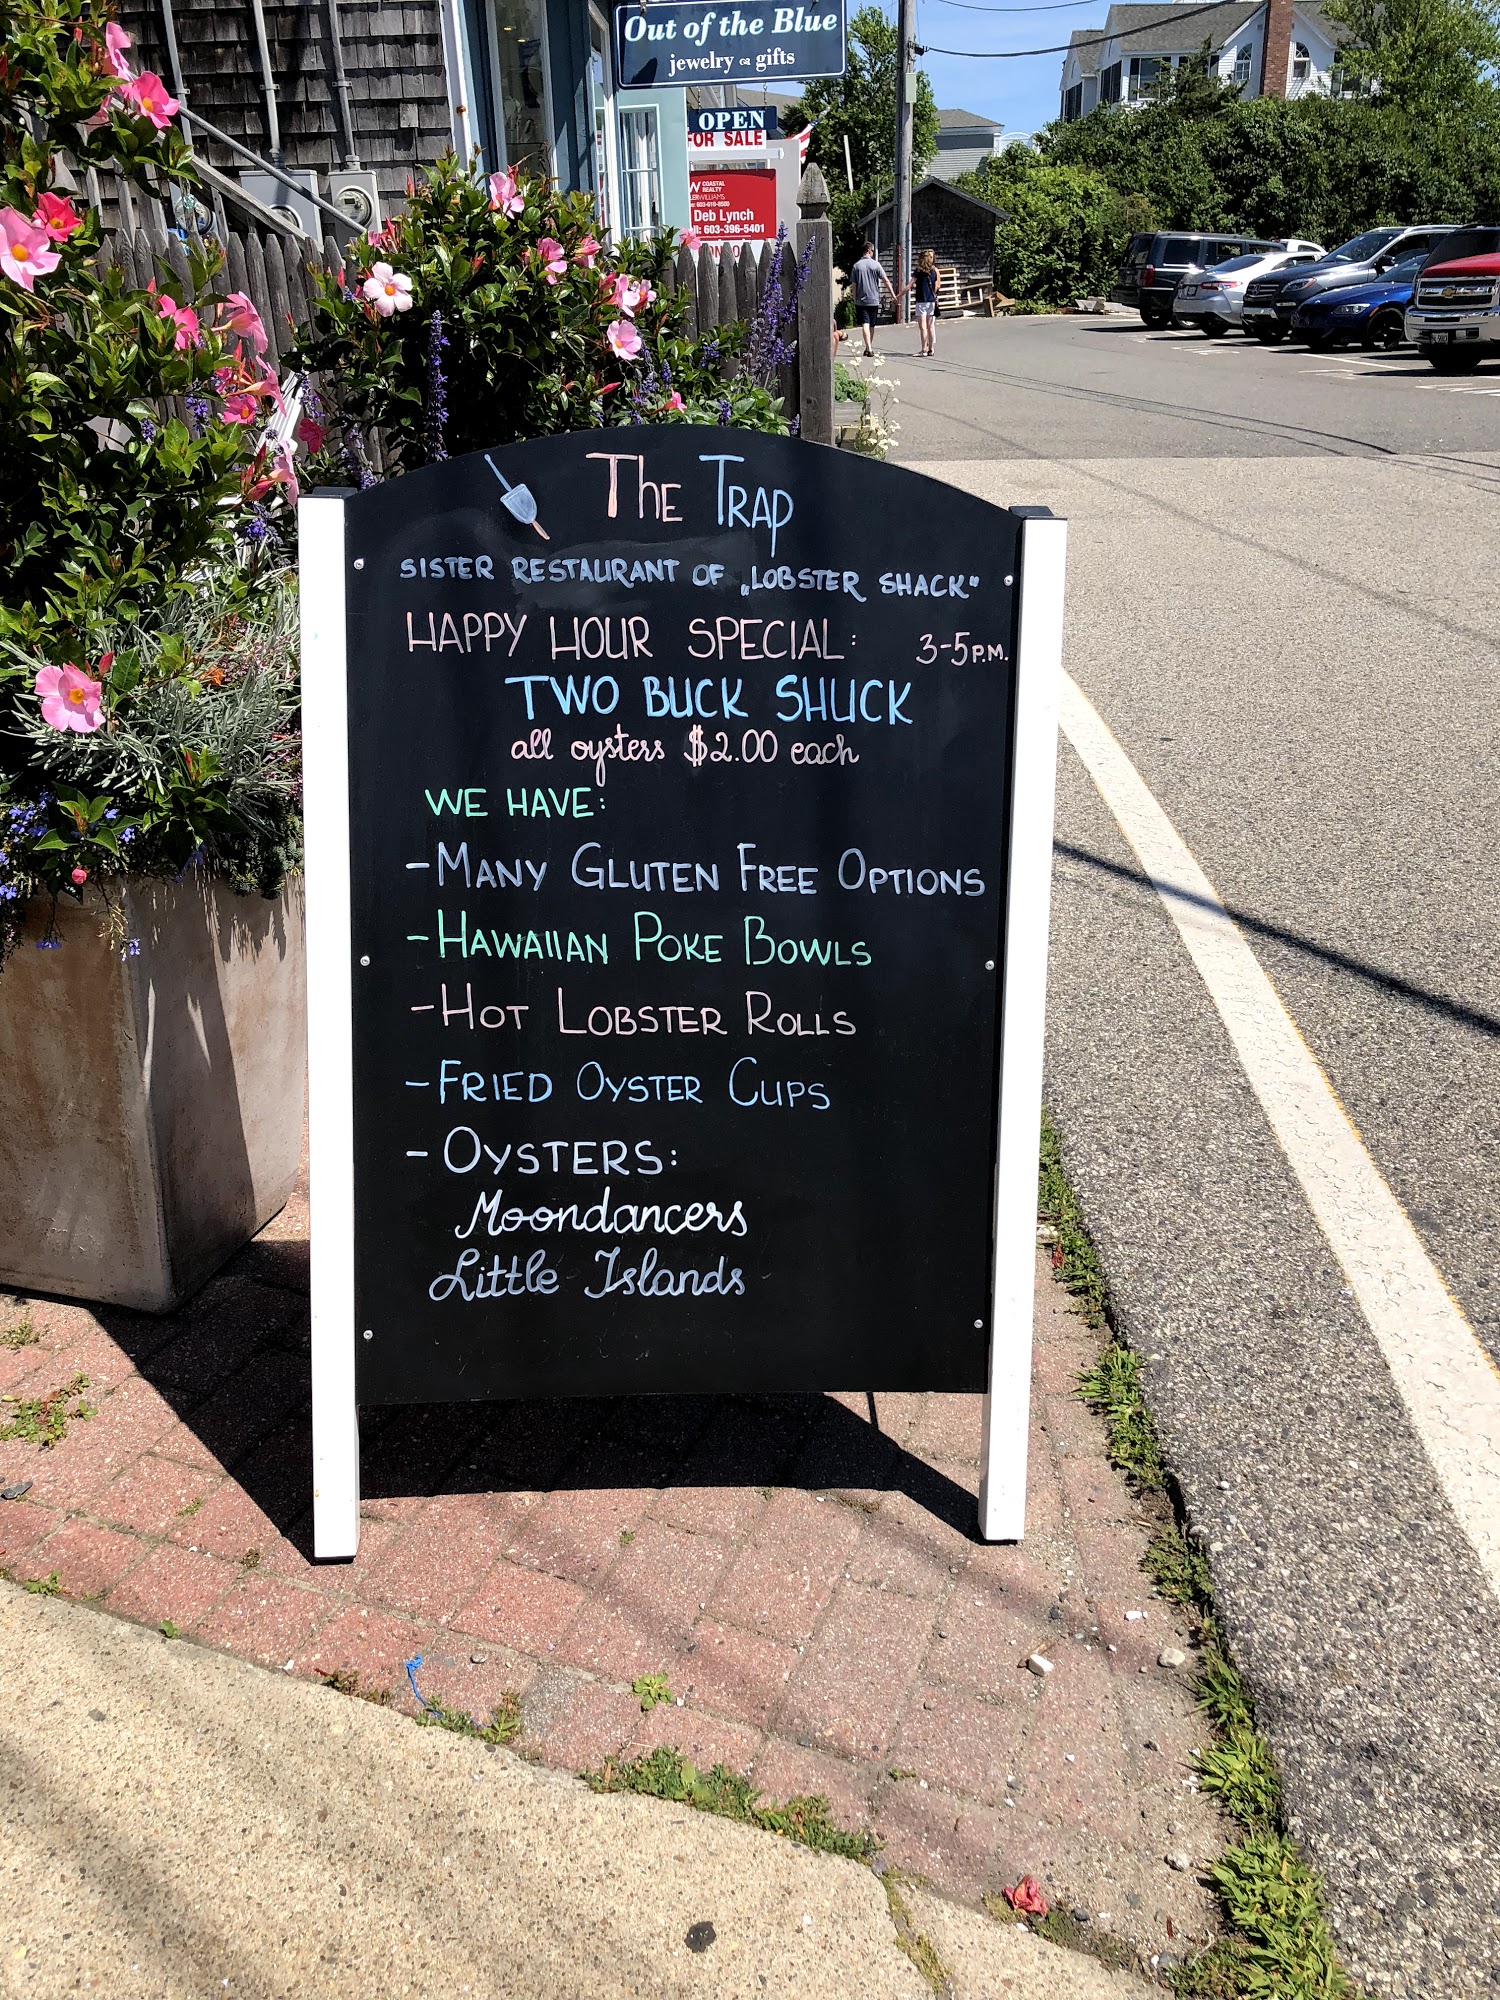 Out of the Blue
jewelry & gifts
OPEN
FOR SALE
COASTAL
REALTY
Deb Lynch
603-396-5401
The Trap
SISTER RESTAURANT OF „LOBSTER SHACK"
HAPPY HOUR SPECIAL: 3-5 P.M.
TWO BUCK SHUCK
all oysters $2.00 each
WE HAVE:
-MANY GLUTEN FREE OPTIONS
-HAWAIIAN POKE BOWLS
-HOT LOBSTER ROLLS
-FRIED OYSTER CUPS
- OYSTERS:
Moondancers
Little Islands